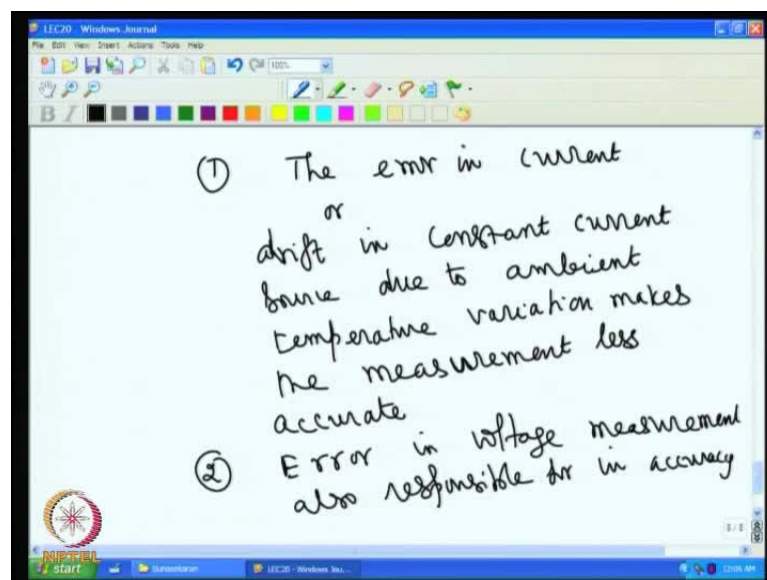 LEC20 - Windows Journal
File Edit View Insert Actions Tools Help
100%
B I
① The error in current
or
drift in constant current
source due to ambient
temperature variation makes
the measurement less
accurate
② Error in voltage measurement
also responsible for in accuracy
8/8
NPTEL
start LEC20 - Windows Jou... 12:06 AM